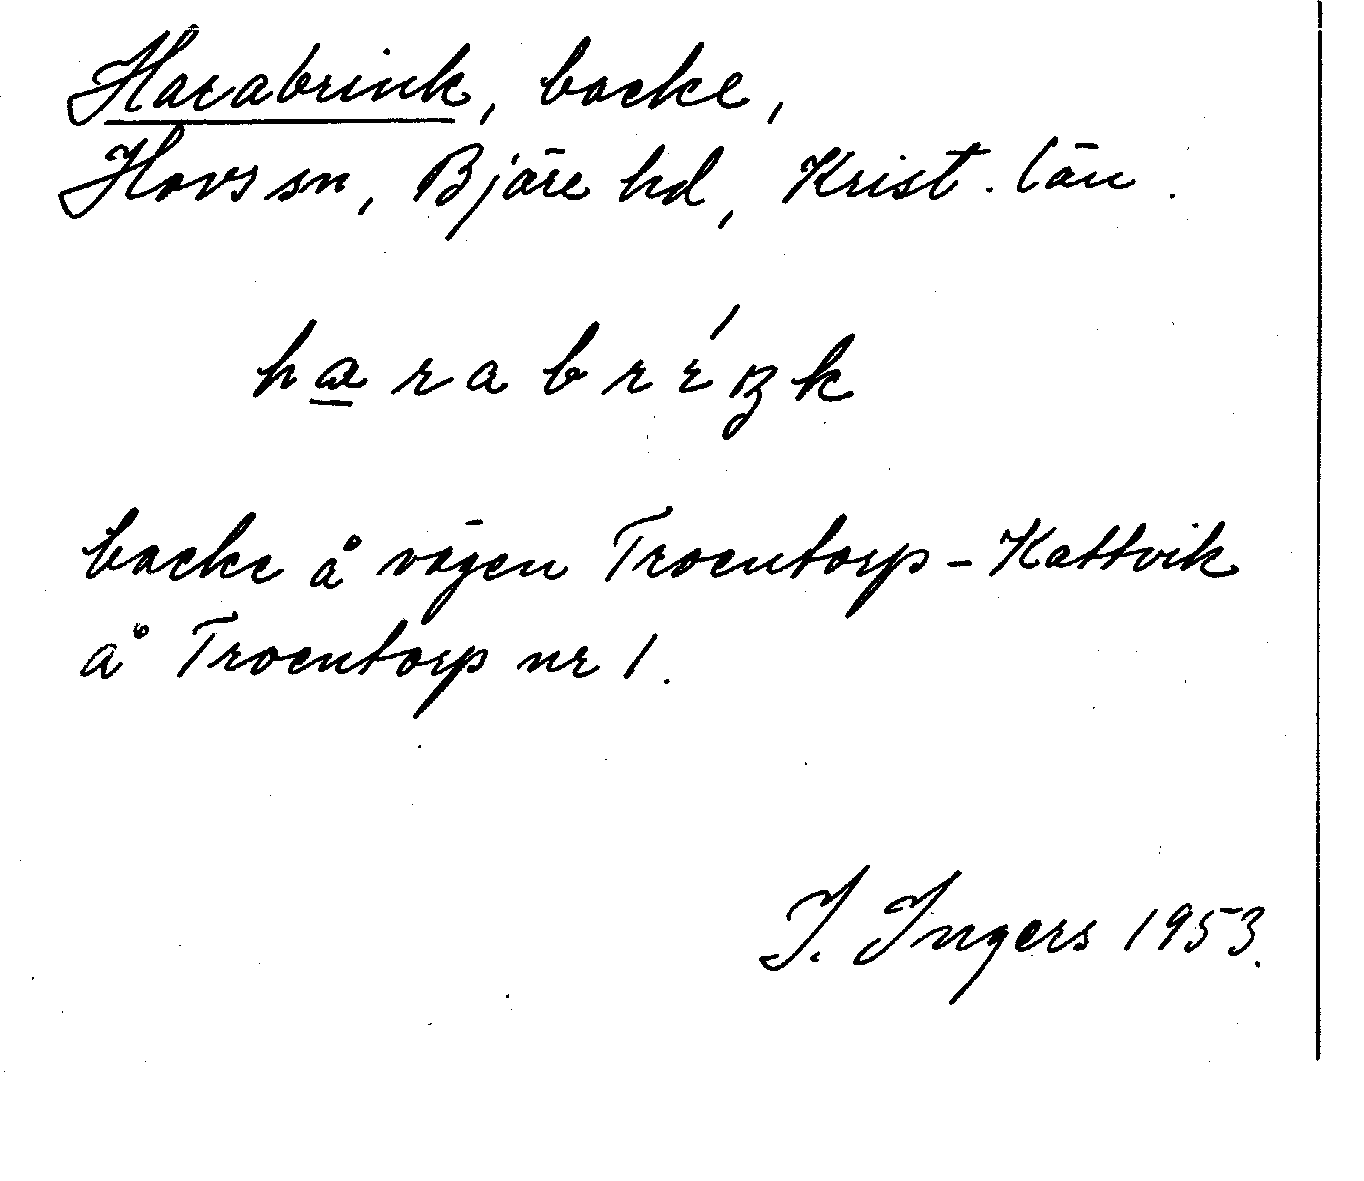 Harabrink, backe,
Hovs sn, Bjäre hd, Krist. län.
harabrıŋ́k
backe å vägen Troentorp - Kattvik
å Troentorp nr 1.
I. Ingers 1953.